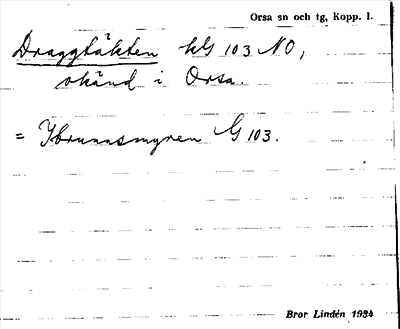 Orsa sn och tg, Kopp. l.
Draggtäkten kls 103 NO,
okänd i Orsa.
= Ybrunnsmyren G 103.
Bror Lindén 1934